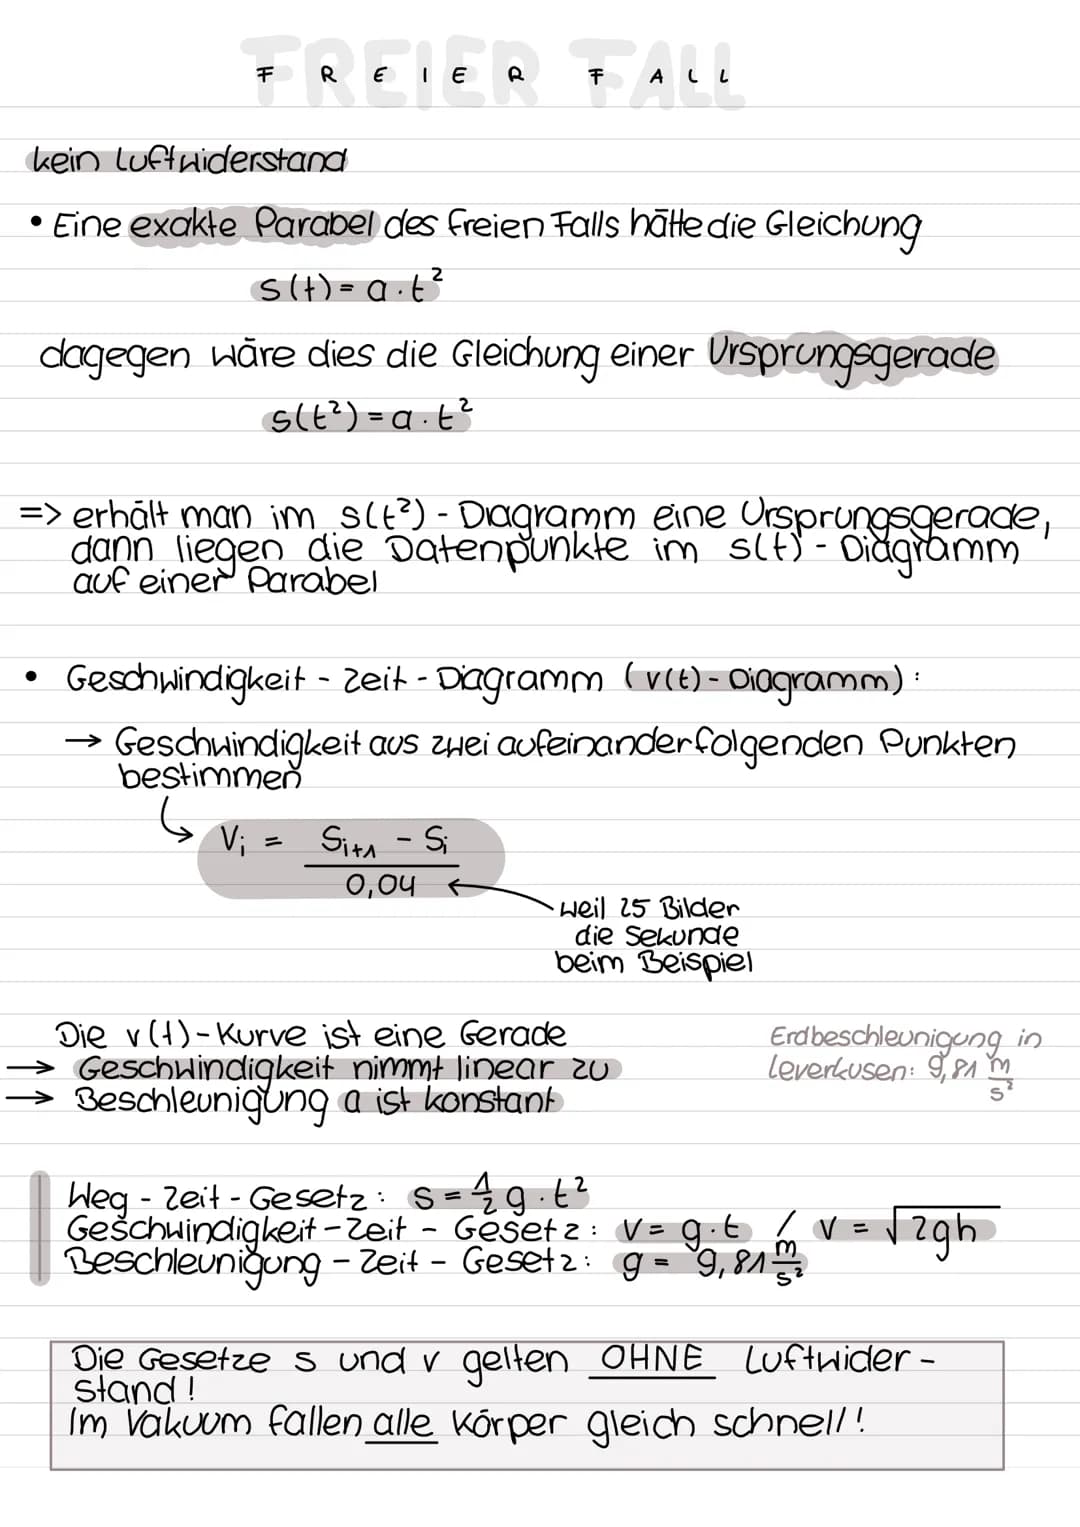 FREIER FALL
kein Luftwiderstand
• Eine exakte Parabel des freien Falls hätte die Gleichung
s(t) = a · t²
dagegen wäre dies die Gleichung einer Ursprungsgerade
s(t²) = a · t²
=> erhält man im s(t²) - Diagramm eine Ursprungsgerade,
dann liegen die Datenpunkte im s(t) - Diagramm
auf einer Parabel
• Geschwindigkeit - Zeit - Diagramm (v(t) - Diagramm) :
→ Geschwindigkeit aus zwei aufeinanderfolgenden Punkten
bestimmen
Vᵢ = (Sᵢ₊₁ - Sᵢ) / 0,04
weil 25 Bilder
die Sekunde
beim Beispiel
Die v(t) - Kurve ist eine Gerade
→ Geschwindigkeit nimmt linear zu
→ Beschleunigung a ist konstant
Erdbeschleunigung in
Leverkusen: 9,81 m/s²
Weg - Zeit - Gesetz : s = ½ g · t²
Geschwindigkeit - Zeit - Gesetz : v = g · t / v = √2gh
Beschleunigung - Zeit - Gesetz : g = 9,81 m/s²
Die Gesetze s und v gelten OHNE Luftwider -
stand !
Im Vakuum fallen alle Körper gleich schnell !